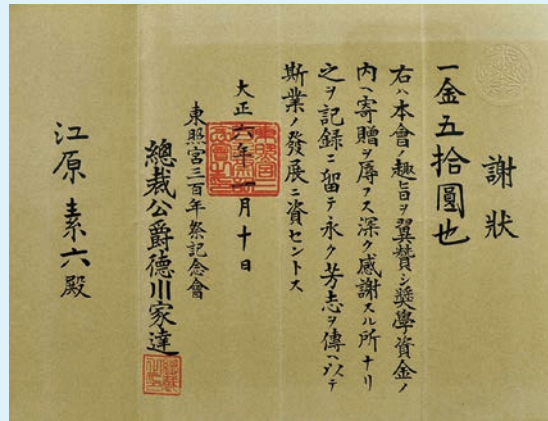 謝狀
一金五拾圓也
右ハ本會ノ趣旨ヲ翼賛シ奨學資金ノ
内ヘ寄贈ヲ辱フス深ク感謝スル所ナリ
之ヲ記録ニ留テ永ク芳志ヲ傳ヘ以テ
斯業ノ發展ニ資セントス
大正六年一月十日
東照宮三百年祭記念會
總裁公爵德川家達
江原素六殿